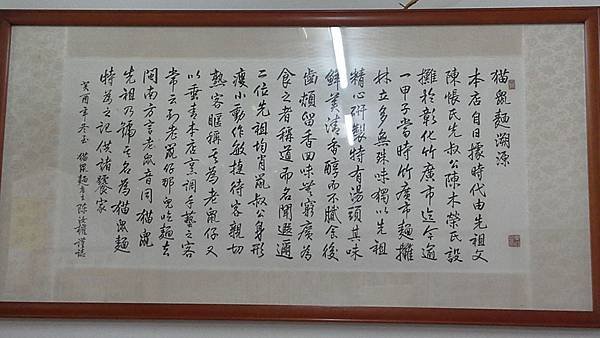 猫鼠麵溯源
本店自日據時代由先祖父
陳悵氏先叔公陳木榮氏設
攤於彰化竹廣市迄今逾
一甲子當時竹廣市麵攤
林立多無殊味獨以先祖
精心研製特有湯頭其味
鮮美清香醇而不膩食後
齒頰留香回味無窮廣為
食之者稱道而名聞遐邇
二位先祖均肖鼠叔公身形
瘦小動作敏捷待客親切
熟客暱稱其為老鼠仔又
以垂青本店烹調手藝之客
常云到老鼠仔那兒吃麵去
閩南方言老鼠音同猫鼠
先祖乃號其名為猫鼠麵
特為之記供諸饕家
癸酉年冬至 猫鼠麵主陳 謹誌